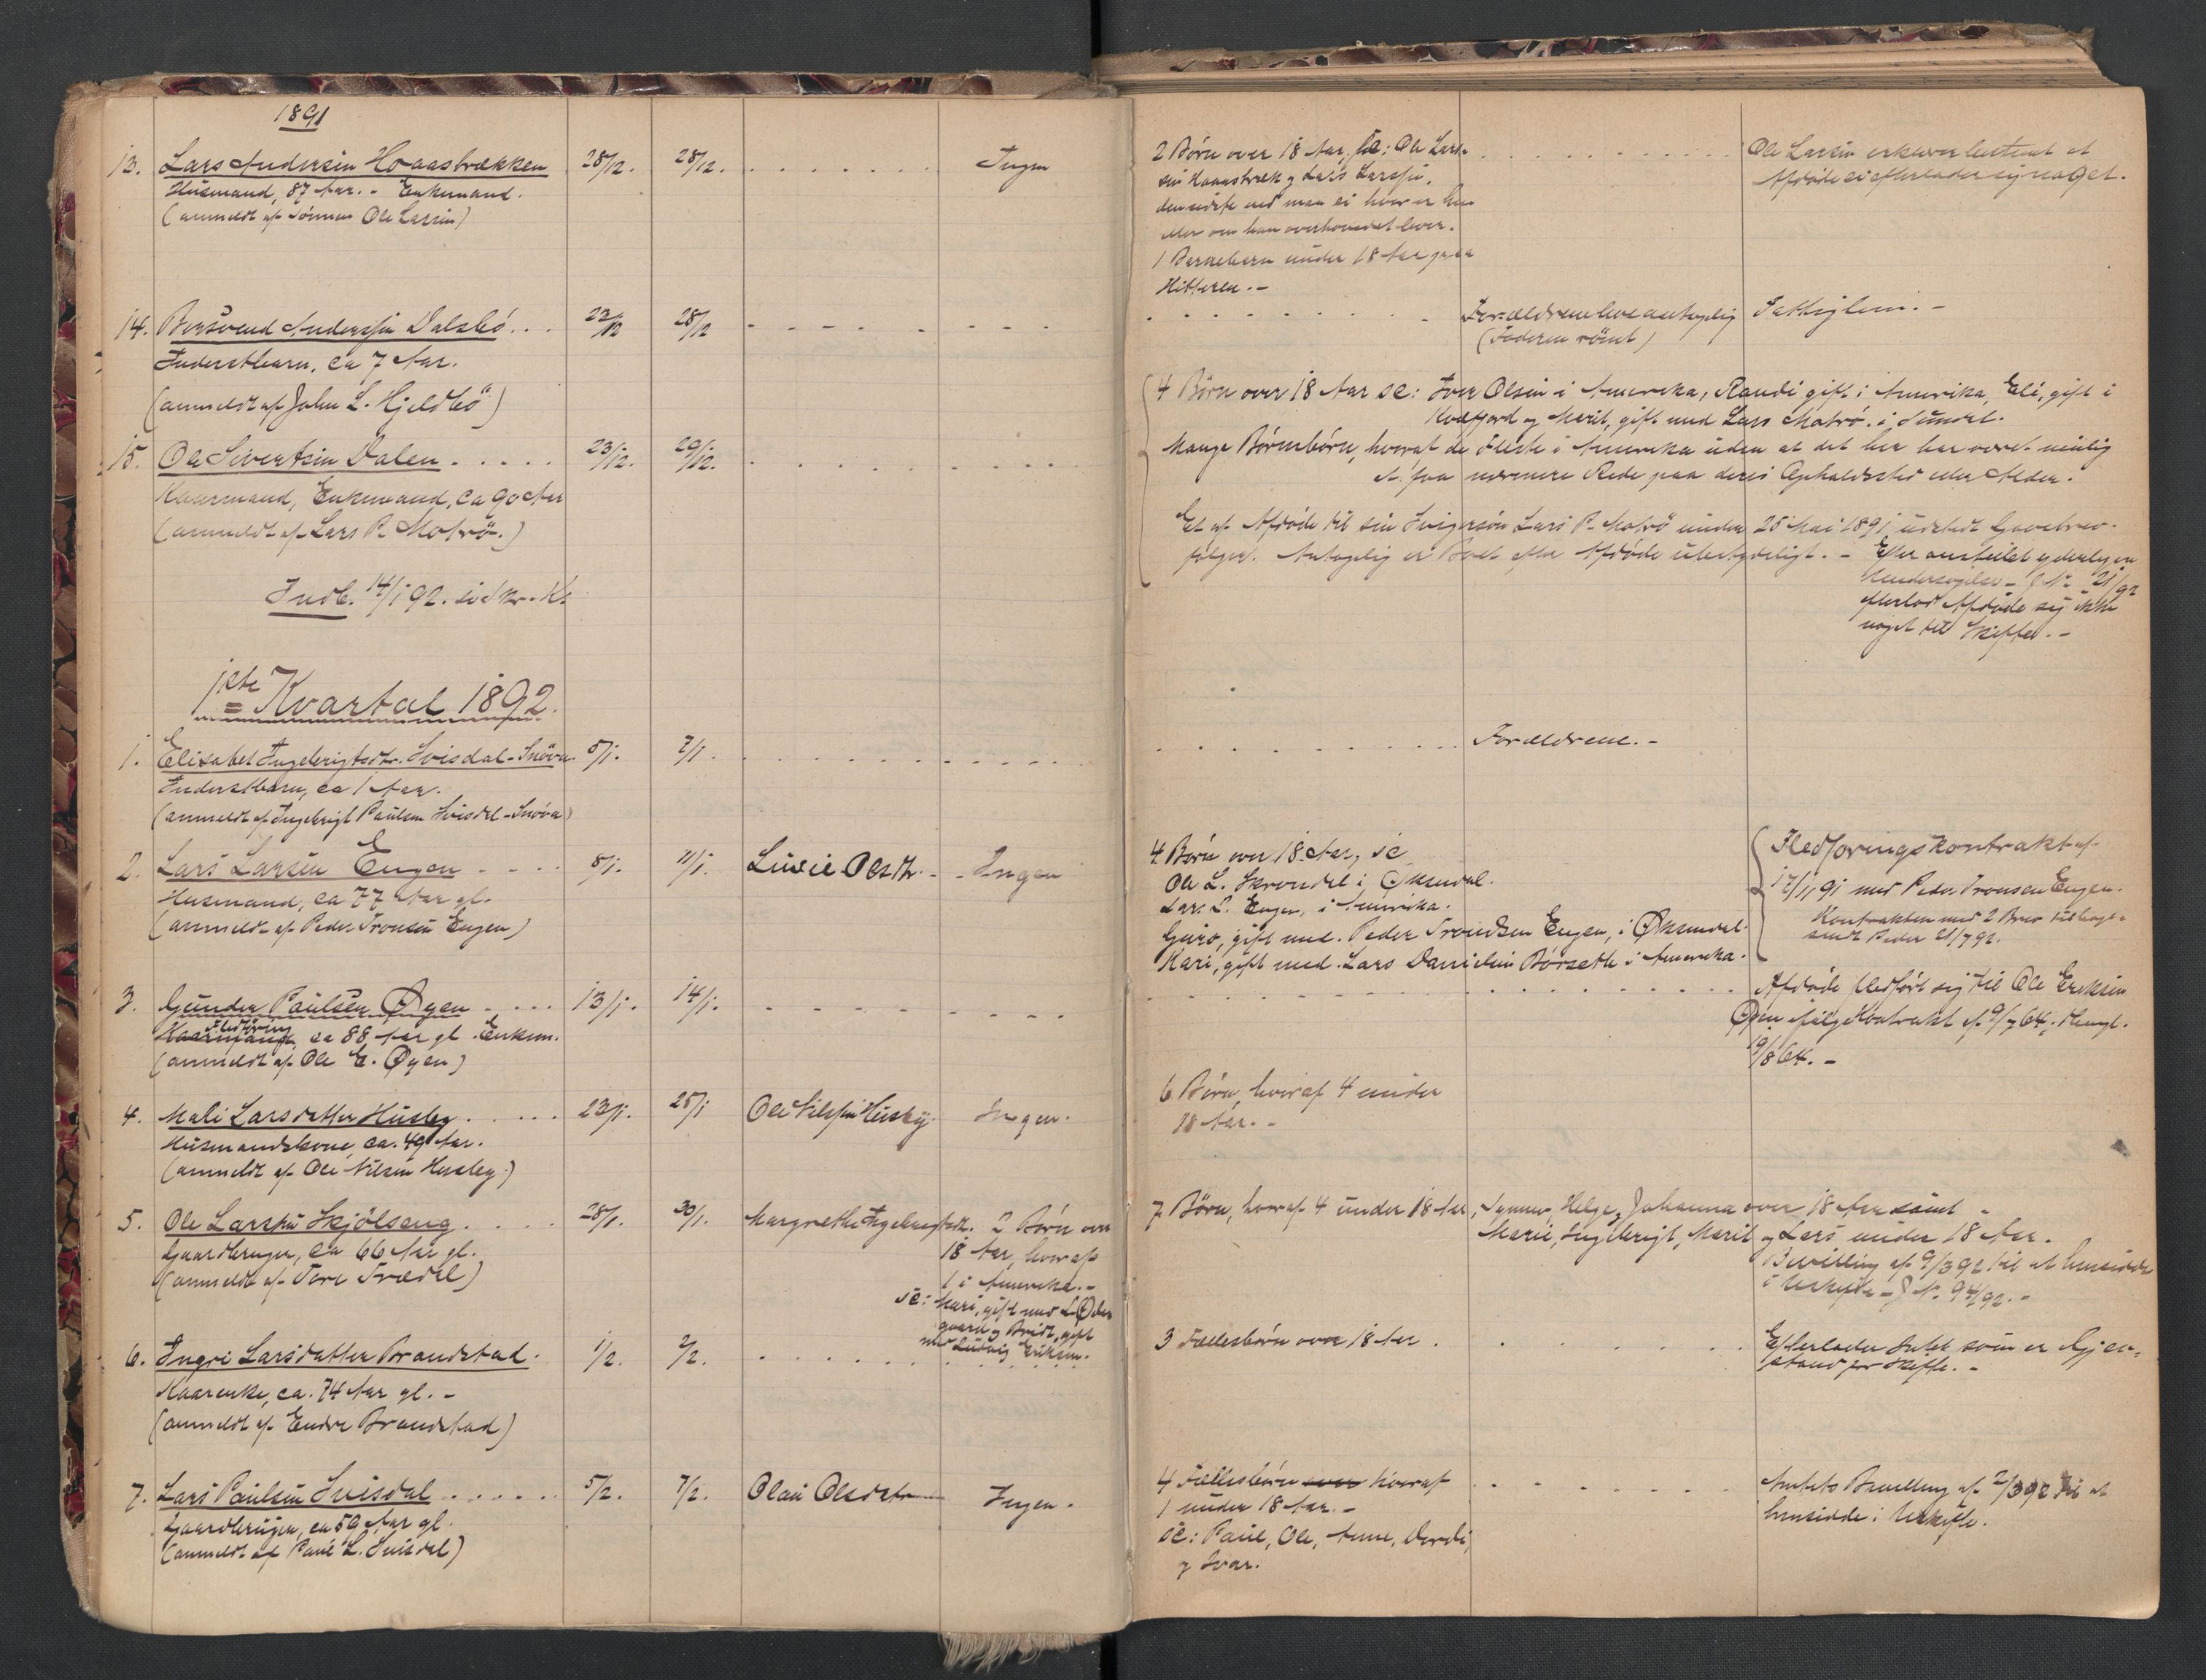 1891
13. Lars Andersen Hoaasbrækken 28/12. 28/12. Ingen
Husmand, 87 Aar. - Enkemand.
(anmeldt af Sønnen Ole Larsen)
2 Børn over 18 Aar, sc: Ole Lars-
sen Hoaasbræk og Lars Larssen,
den sidste ved man ei hvor er hen
eller om han overhovedet lever.
1 Barnebarn under 18 Aar paa
Hitteren. -
Ole Larsen erklærer bestemt at
Afdøde ei efterlader sig noget.
14. Andersen Dalsbø 22/12 28/12
Inderstbarn, ca 7 Aar.
(anmeldt af John L. Hjeldbö)
Forældrene
(Faderen römt)
Fattiglem. -
15. Ole Sivertsen Dalen 23/12. 29/12.
Kaarmand, Enkemand, ca 90 Aar
(anmeldt af Lars P. Mofrö.)
4 Børn over 18 Aar sc: Iver Olsen i Amerika, Randi gift i Amerika, Eli, gift i
og Marit, gift med Lars Mofrö i Sundal.
Mange Börnebörn, hvoraf de fleste i Amerika uden at det her har været mulig
at faa nærmere Rede paa deres Opholdssted eller Alder.
Et af Afdøde til sin Svigersøn Lars P. Mofrö under 25 Mai 1891 udstedt Gavebrev
følger. Antagelig er Boet efter Afdøde ubetydeligt. - Efter anstillet yderligere
Undersøgelse - J. N. 21/92
efterlod Afdøde sig ikke
noget til Skifte. -
Indb. 14/1 92.
1ste Kvartal 1892.
1. Elisabet Ingebrigtsdtr. Svisdal-Snöva 5/1. 7/1.
Inderstbarn, ca 1 Aar.
(anmeldt af Ingebrigt Paulsen Svisdal-Snöva)
Forældrene. -
2. Lars Larsen Engen 8/1. 11/1. Ingen
Husmand, ca 77 Aar gl.
(anmeldt af Peder Tronsen Engen)
4 Børn over 18 Aar, sc
Ole L. Skrondal i Øksendal.
Lars L. Engen, i Amerika.
Guro, gift med Peder Trondsen Engen, i Øksendal.
Mari, gift med Lars Danielsen Børseth i Amerika.
Fledføringskontrakt af
17/11 91 med Peder Tronsen Engen.
Kontrakten med 2 Brev tilbage-
sendt Peder 21/7 92.
3. Gunder Paulsen Øyen 13/1. 14/1.
Kaarmand, ca 88 Aar gl. Enkem.
(anmeldt af Ole E. Øyen)
Afdøde fledført sig til Ole Eriksen
Øyen ifølge Kontrakt af 9/7 64, thingl.
19/8 64. -
4. Mali Larsdatter Husby 23/1. 25/1 Ole Nilssen Husby. Ingen.
Husmandskone, ca. 49 Aar.
(anmeldt af Ole Nilsen Husby.)
6 Børn, hvoraf 4 under
18 Aar. -
5. Ole Larssen Skjölseng 28/1. 30/1. Margrethe 2 Børn over
18 Aar, hvoraf
1 i Amerika. -
sc: Mari, gift med L. Øde-
gaard og Brit, gift
med Ludvig Eriksen.
Gaardbruger, ca 66 Aar gl.
(anmeldt af Tore Trædal)
7 Børn, hvoraf 4 under 18 Aar, Helge, Johanna over 18 Aar samt -
Marie, Ingebrigt, Marit og Lars under 18 Aar.
Bevilling af 9/3 92 til at hensidde
i Uskifte - J. N. 94/92. -
6. Ingri Larsdatter Brandstad 1/2. 2/2.
Kaarenke, ca. 74 Aar gl. -
(anmeldt af Endre Brandstad)
3 Fællesbørn over 18 Aar.
Efterlader Intet som er Gjen-
stand for Skifte. -
7. Lars Paulsen Svisdal 5/2. 7/2. Olau Olsdatr Ingen.
Gaardbruger, ca 59 Aar gl.
(anmeldt af Paul L. Svisdal)
4 Fællesbørn over hvoraf
1 under 18 Aar. -
sc: Paul, Ole, Anne, Dordi,
og Ivar.
Amtets Bevilling af 2/3 92 til at
hensidde i Uskifte.